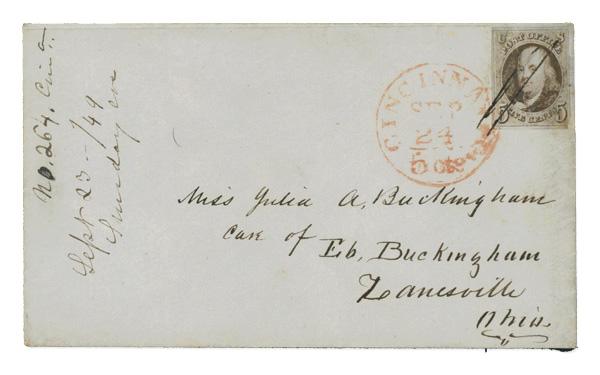 No. 264, Cin. O.
Sept 23 - /49
Sunday eve
CINCINNATI
SEP
24
5 cts
POST OFFICE
5 FIVE CENTS 5
Miss Julia A. Buckingham
Care of
Eb. Buckingham
Zanesville
Ohio